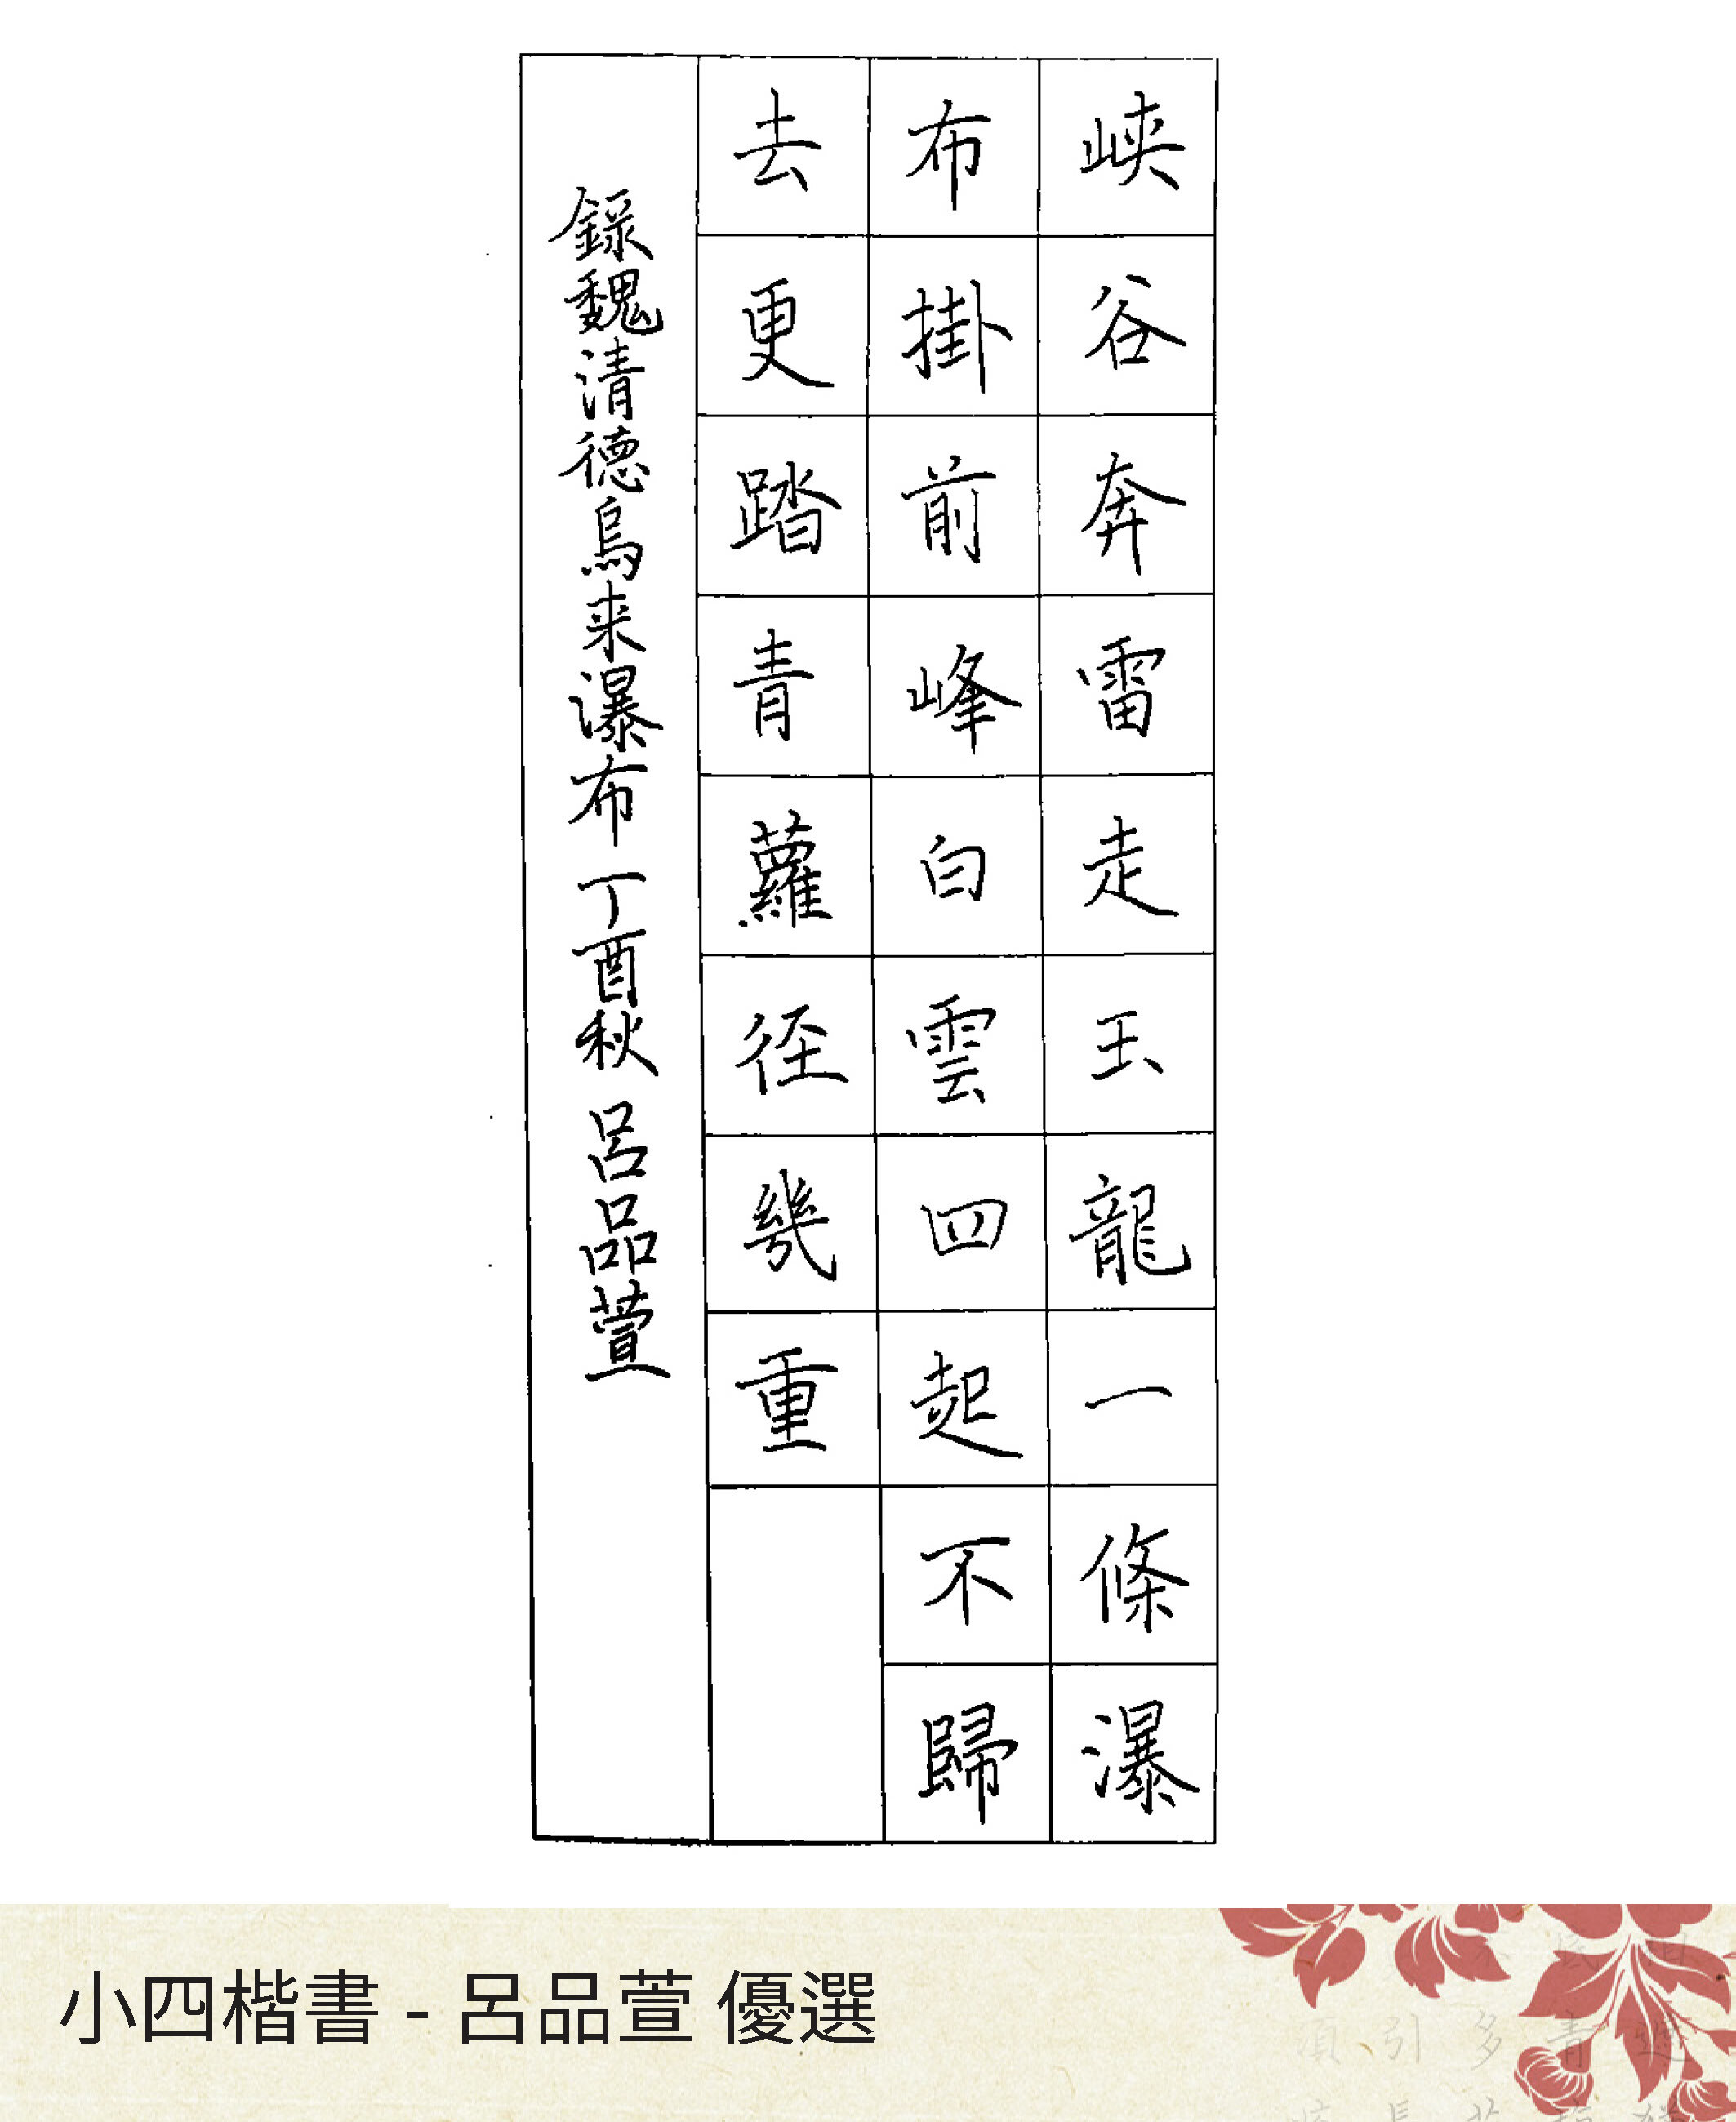 峽谷奔雷走玉龍一條瀑
布掛前峰白雲四起不歸
去更踏青蘿徑幾重
錄魏清德烏来瀑布 丁酉秋 呂品萱
小四楷書 - 呂品萱 優選